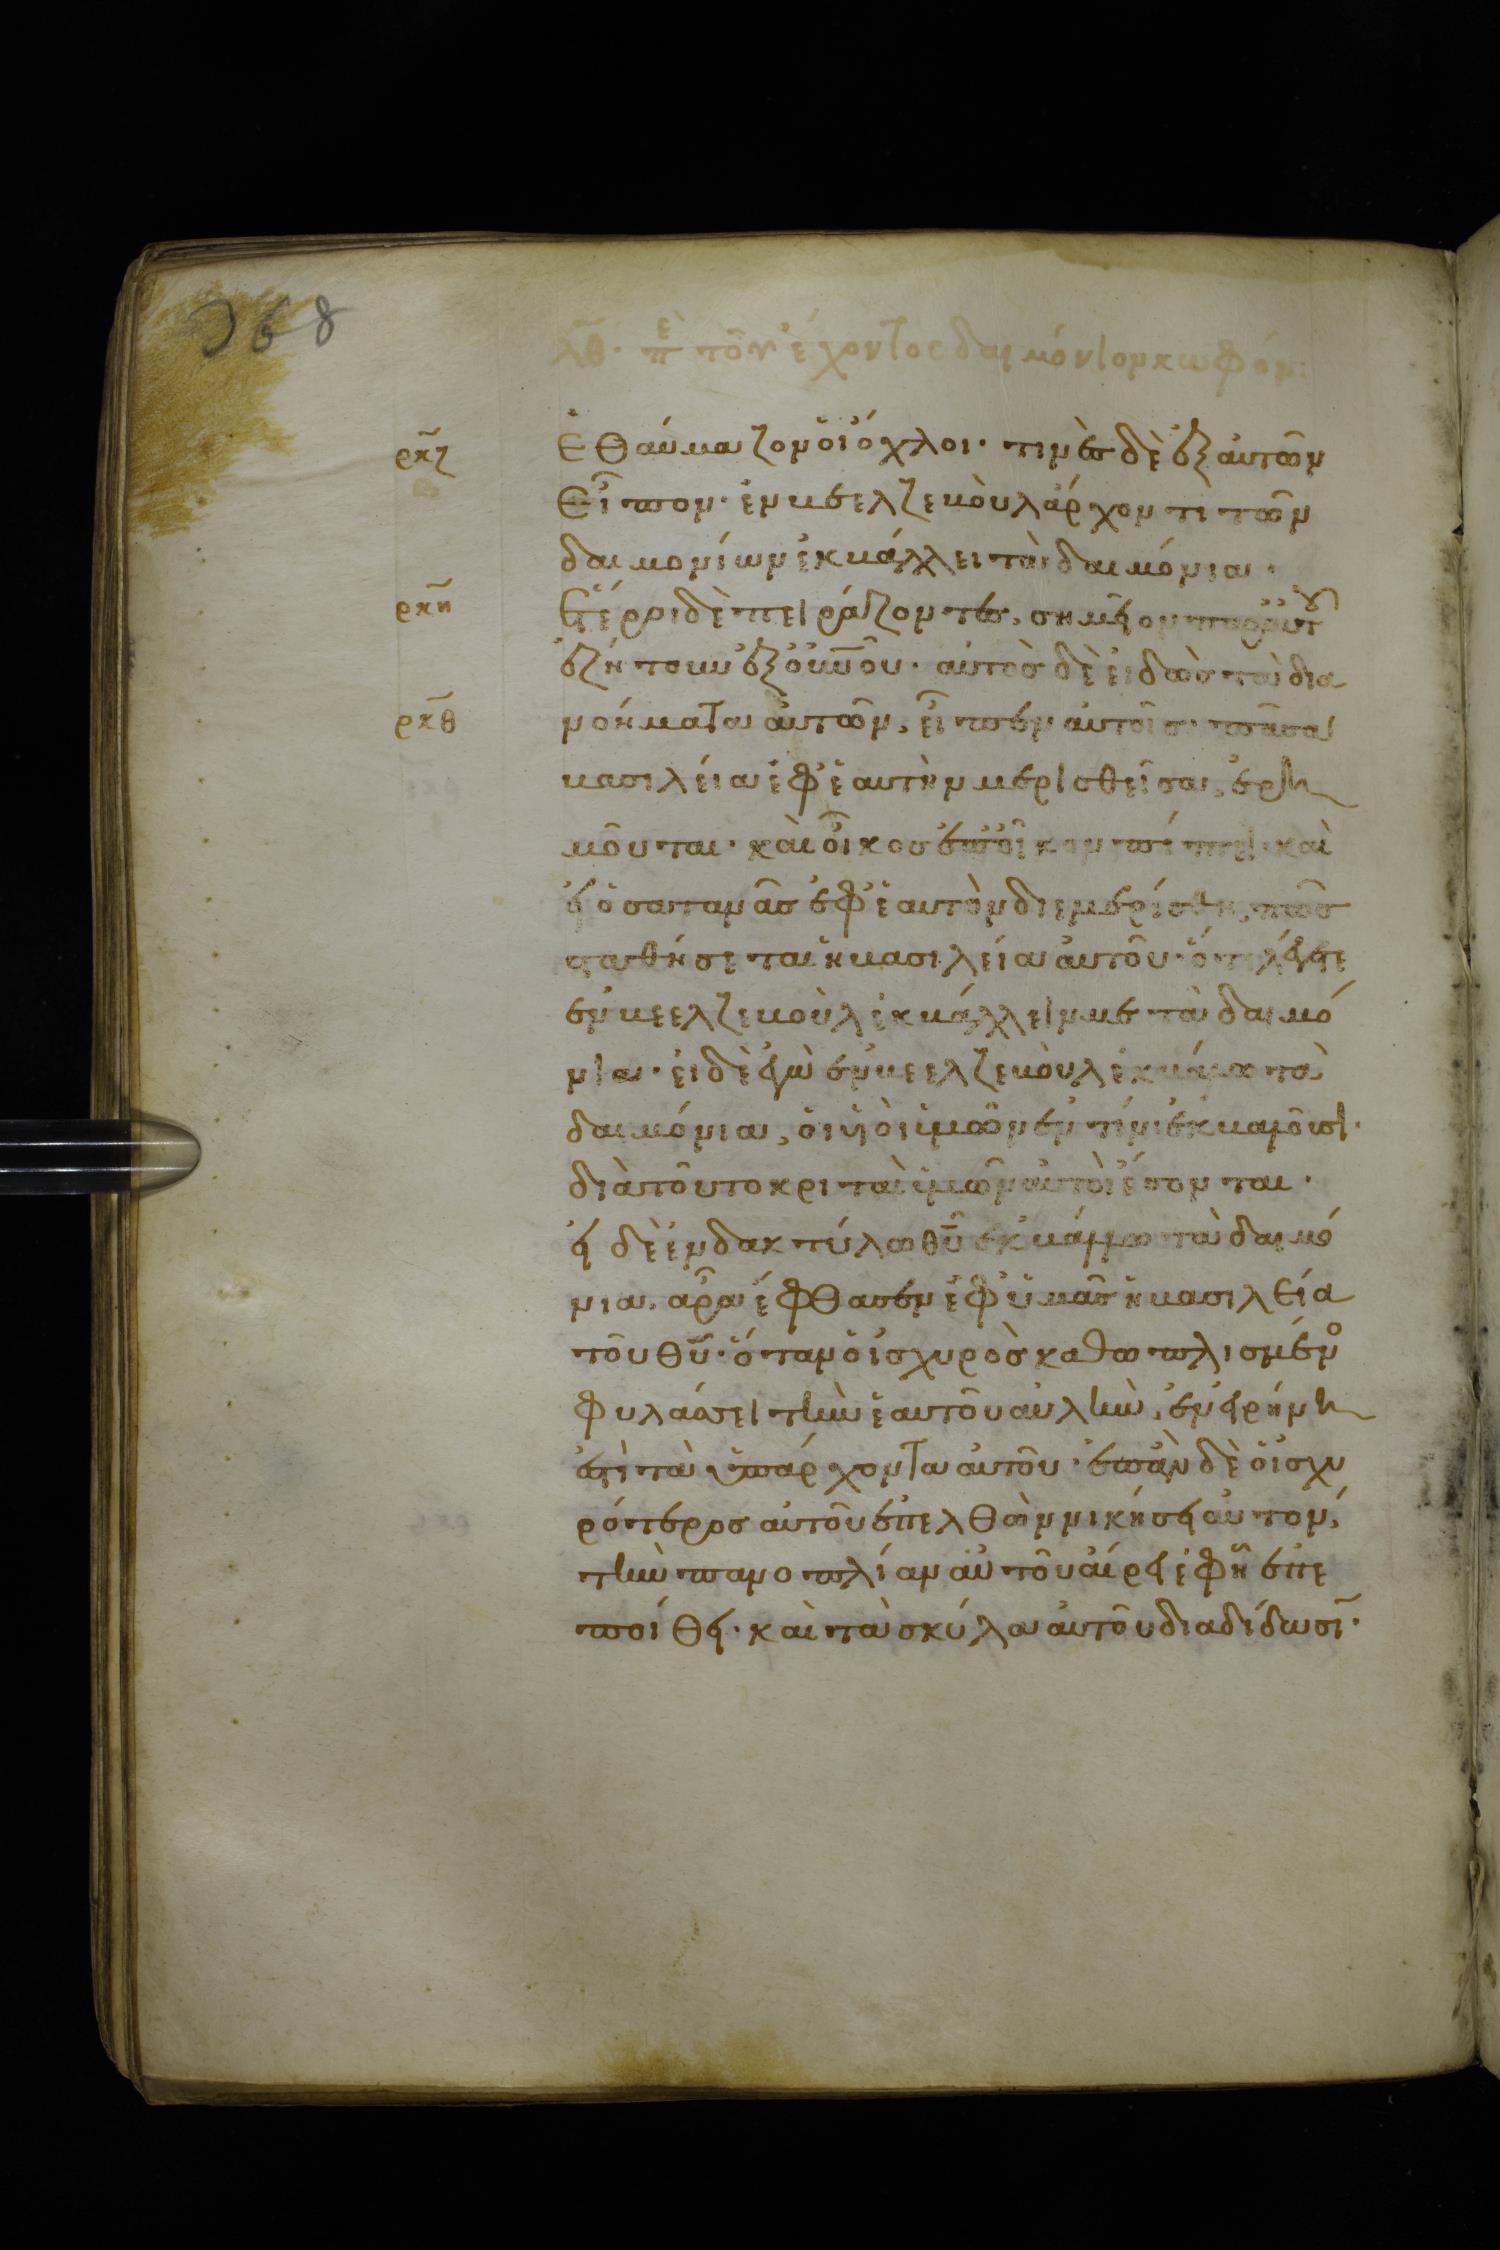 368
λθ· πε τοῦ ἔχοντος δαιμόνιον κωφόν:
ρκζ
ἐθαύμαζον ὁι ὄχλοι· τινὲς δὲ ἐξ αὐτῶν
εἶπον· ἐν βεελζεβοὺλ ἄρχοντι τῶν
δαιμονίων ἐκβάλλει τὰ δαιμόνια·
ρκη
ἕτεροι δὲ πειράζοντες, σημεῖον παρ αὐτοῦ
ἐζήτουν ἐξ οὐνοῦ· αὐτὸς δὲ εἰδὼς τὰ δια
ρκθ
νοήματα αὐτῶν, εἶπεν αὐτοῖς· πᾶσα
βασιλεία ἐφ ἑαυτὴν μερισθεῖσα, ἐρη
μοῦται· καὶ οἶκος ἐπ οἶκον πίπτει· καὶ
εἰ ὁ σατανᾶς ἐφ ἑαυτὸν διεμερίσθη, πῶς
σταθήσεται ἡ βασιλεία αὐτοῦ· ὅτι λέγετε
ἐν βεελζεβοὺλ ἐκβάλλειν με τὰ δαιμό
νια· εἰ δὲ ἐγὼ ἐν βεελζεβοὺλ ἐκβάλλω τὰ
δαιμόνια, ὁι ὑιὸι ὑμῶν ἐν τίνι ἐκβαλοῦσι·
διὰ τοῦτο κριταὶ ὑμῶν αὐτὸὶ ἔσονται·
εἰ δὲ ἐν δακτύλω θῦ ἐκβάλλω τὰ δαιμό
νια, ἄρα ἔφθασεν ἐφ ὑμᾶς ἡ βασιλεία
τοῦ θῦ· ὅταν ὁ ἰσχυρὸς καθωπλισμένο
φυλάσσει τὴν ἑαυτοῦ αὐλὴν, ἐν εἰρήνη
ἐστὶ τὰ ὑπάρχοντα αὐτοῦ· ἐπὰν δὲ ὁ ἰσχυ
ρότερος αὐτοῦ ἐπελθὼν νικήσει αὐτὸν,
τὴν πανοπλίαν αὐτοῦ αἴρει ἐφ ἧ ἐπε
ποίθει· καὶ τὰ σκύλα αὐτοῦ διαδίδωσι·